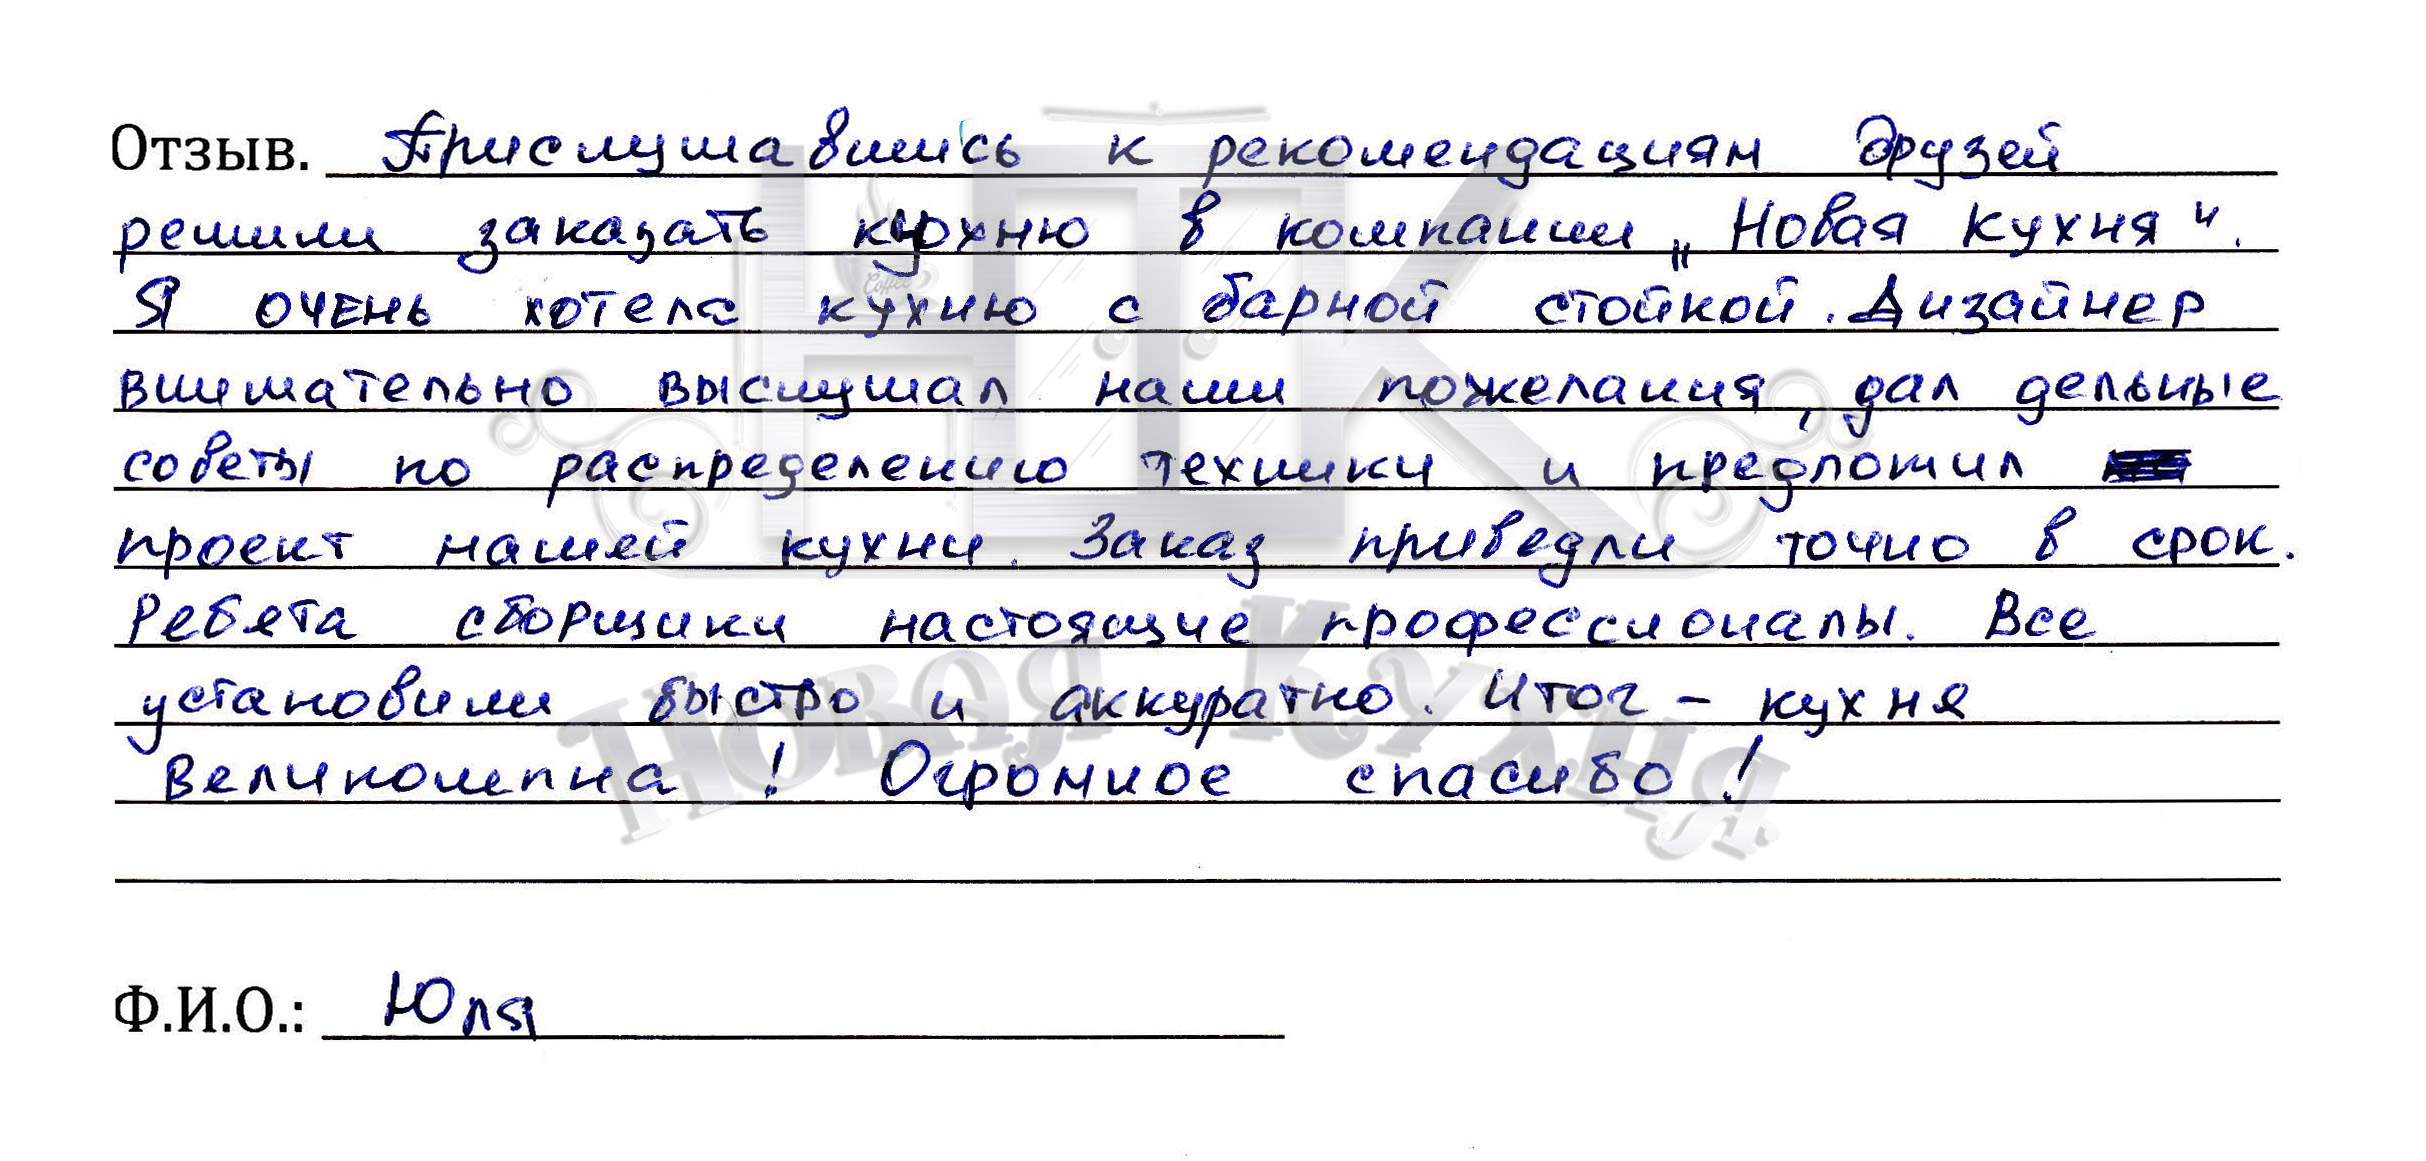 Отзыв. Прислушавшись к рекомендациям друзей
решили заказать кухню в компании „Новая кухня".
Я очень хотела кухню с барной стойкой. Дизайнер
внимательно выслушал наши пожелания, дал дельные
советы по распределению техники и предложил
проект нашей кухни. Заказ приведли точно в срок.
Ребята сборщики настоящие профессионалы. Все
установили быстро и аккуратно. Итог – кухня
великолепна! Огромное спасибо!
Ф.И.О.: Юля
НК
Coffee
Новая Кухня